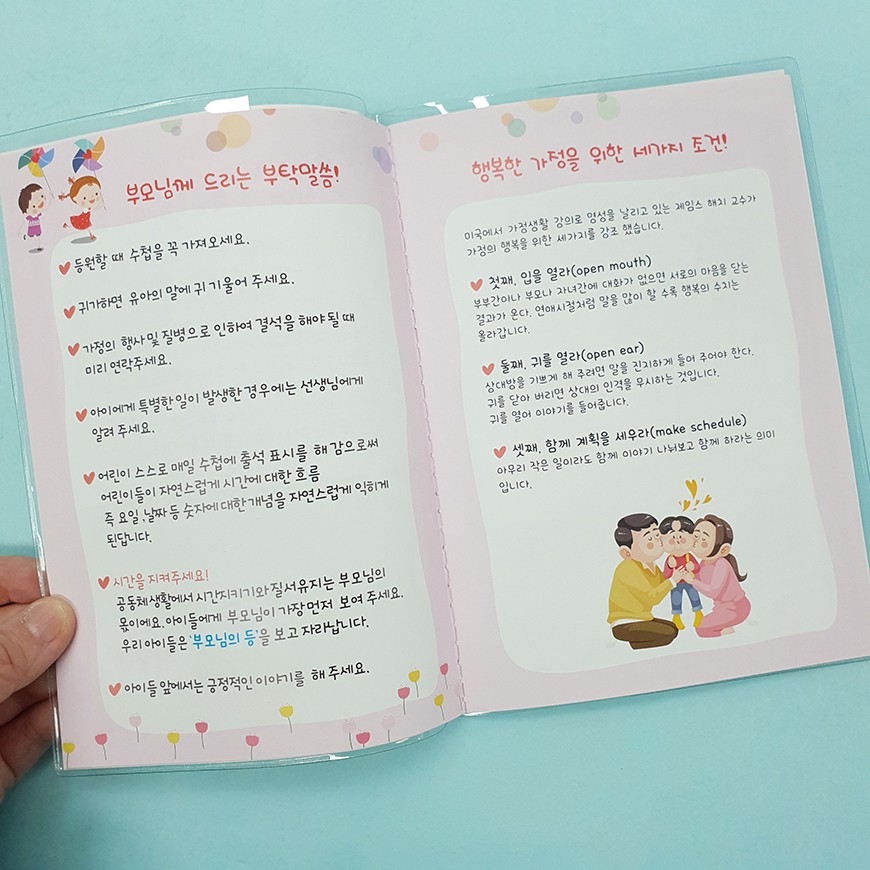 부모님께 드리는 부탁말씀!
등원할 때 수첩을 꼭 가져오세요.
귀가하면 유아의 말에 귀 기울어 주세요.
가정의 행사 및 질병으로 인하여 결석을 해야 될 때
미리 연락주세요.
아이에게 특별한 일이 발생한 경우에는 선생님에게
알려 주세요.
어린이 스스로 매일 수첩에 출석 표시를 해 감으로써
어린이들이 자연스럽게 시간에 대한 흐름
즉 요일, 날짜 등 숫자에 대한 개념을 자연스럽게 익히게
된답니다.
시간을 지켜주세요!
공동체 생활에서 시간지키기와 질서유지는 부모님의
몫이에요. 아이들에게 부모님이 가장 먼저 보여 주세요.
우리 아이들은 '부모님의 등'을 보고 자라납니다.
아이들 앞에서는 긍정적인 이야기를 해 주세요.
행복한 가정을 위한 세가지 조건!
미국에서 가정생활 강의로 명성을 날리고 있는 제임스 해치 교수가
가정의 행복을 위한 세가지를 강조 했습니다.
첫째, 입을 열라(open mouth)
부부간이나 부모나 자녀간에 대화가 없으면 서로의 마음을 닫는
결과가 온다. 연애시절처럼 말을 많이 할 수록 행복의 수치는
올라갑니다.
둘째, 귀를 열라(open ear)
상대방을 기쁘게 해 주려면 말을 진지하게 들어 주어야 한다.
귀를 닫아 버리면 상대의 인격을 무시하는 것입니다.
귀를 열어 이야기를 들어줍니다.
셋째, 함께 계획을 세우라(make schedule)
아무리 작은 일이라도 함께 이야기 나눠보고 함께 하라는 의미
입니다.